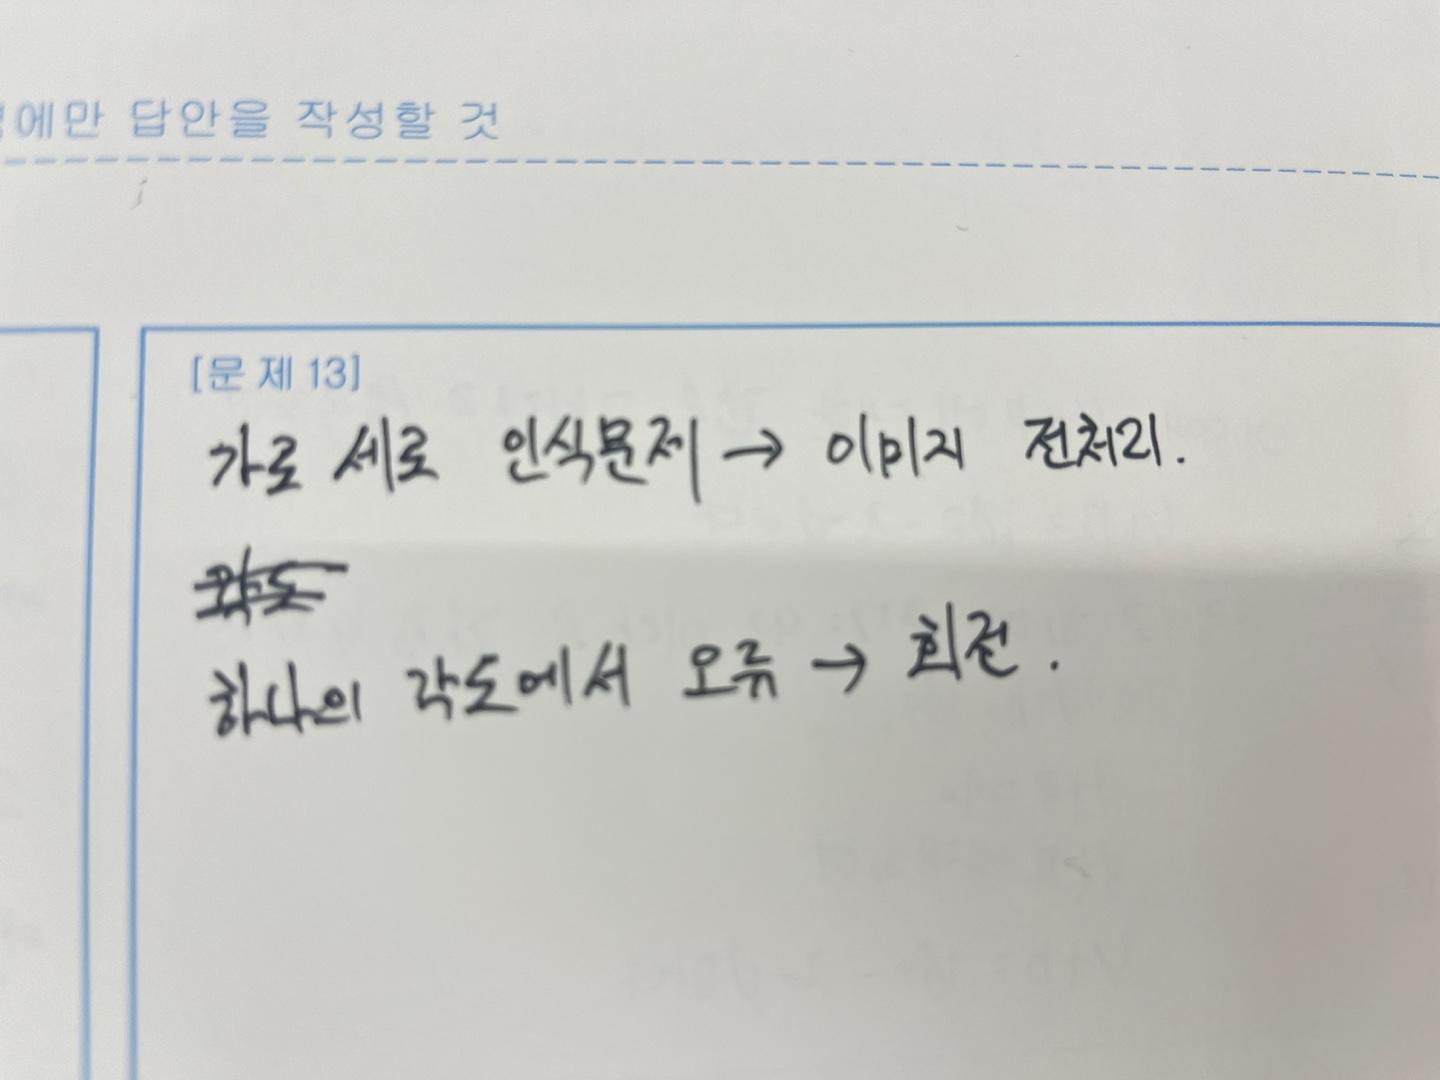 에만 답안을 작성할 것
[문 제 13]
가로 세로 인식문제 → 이미지 전처리.
하나의 각도에서 오류 → 회전.